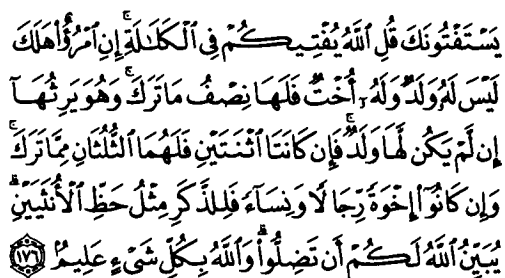 يَسْتَفْتُونَكَ قُلِ ٱللَّهُ يُفْتِيكُمْ فِى ٱلْكَلَـٰلَةِ ۚ إِنِ ٱمْرُؤٌا۟ هَلَكَ
لَيْسَ لَهُۥ وَلَدٌ وَلَهُۥٓ أُخْتٌ فَلَهَا نِصْفُ مَا تَرَكَ ۚ وَهُوَ يَرِثُهَآ
إِن لَّمْ يَكُن لَّهَا وَلَدٌ ۚ فَإِن كَانَتَا ٱثْنَتَيْنِ فَلَهُمَا ٱلثُّلُثَانِ مِمَّا تَرَكَ ۚ
وَإِن كَانُوٓا۟ إِخْوَةً رِّجَالًا وَنِسَآءً فَلِلذَّكَرِ مِثْلُ حَظِّ ٱلْأُنثَيَيْنِ ۗ
يُبَيِّنُ ٱللَّهُ لَكُمْ أَن تَضِلُّوا۟ ۗ وَٱللَّهُ بِكُلِّ شَىْءٍ عَلِيمٌۢ ١٧٦